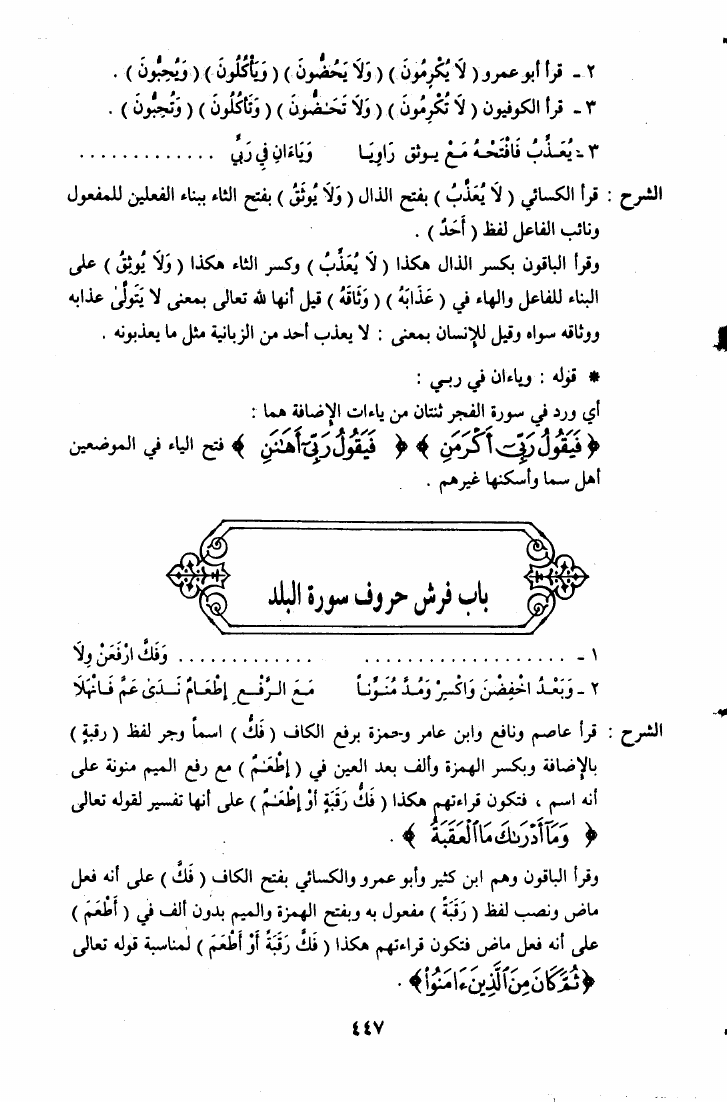 ٢ ـ قرأ أبو عمرو ( لَا يُكْرِمُونَ ) ( وَلَا يَحُضُّونَ ) ( وَيَأْكُلُونَ ) ( وَيُحِبُّونَ ) .
٣ ـ قرأ الكوفيون ( لَا تُكْرِمُونَ ) ( وَلَا تَحَـٰضُّونَ ) ( وَتَأْكُلُونَ ) ( وَتُحِبُّونَ ) .
٣ ـ يُعَـذِّبُ فَافْتَحْـهُ مَـعْ يـوثق رَاوِيَـا وَيَاءَانِ فِي رَبِّي . . . . . . . . . . . . .
الشرح : قرأ الكسائي ( لَا يُعَذَّبُ ) بفتح الذال ( وَلَا يُوثَقُ ) بفتح الثاء ببناء الفعلين للمفعول
ونائب الفاعل لفظ ( أَحَدٌ ) .
وقرأ الباقون بكسر الذال هكذا ( لَا يُعَذِّبُ ) وكسر الثاء هكذا ( وَلَا يُوثِقُ ) على
البناء للفاعل والهاء في ( عَذَابَهُ ) ( وَثَاقَهُ ) قيل أنها لله تعالى بمعنى لا يَتَولَّىٰ عذابه
ووثاقه سواه وقيل للإنسان بمعنى : لا يعذب أحد من الزبانية مثل ما يعذبونه .
* قوله : وياءان في ربـي :
أي ورد في سورة الفجر ثنتان من ياءات الإضافة هما :
﴿ فَيَقُولُ رَبِّيٓ أَكْرَمَنِ ﴾ ﴿ فَيَقُولُ رَبِّيٓ أَهَـٰنَنِ ﴾ فتح الياء في الموضعين
أهل سما وأسكنها غيرهم .
باب فرش حروف سورة البلد
١ ـ . . . . . . . . . . . . . . . . . . . . . . . . . . . . . . . . وَفَكُّ ارْفَعَنْ وِلَا
٢ ـ وَبَعْـدُ اخْفِضْـنَ وَاكْسِرْ وَمُـدَّ مُنَـوِّنـاً مَـعَ الـرَّفْـعِ إِطْعَـامٌ نَـدَىً عَمَّ فَـانْهَلَا
الشرح : قرأ عاصم ونافع وابن عامر وحمزة برفع الكاف ( فَكُّ ) اسماً وجر لفظ ( رقبةٍ )
بالإضافة وبكسر الهمزة وألف بعد العين في ( إِطْعَـٰمٌ ) مع رفع الميم منونة على
أنه اسم ، فتكون قراءتهم هكذا ( فَكُّ رَقَبَةٍ أَوْ إِطْعَـٰمٌ ) على أنها تفسير لقوله تعالى
﴿ وَمَآ أَدْرَىٰكَ مَا ٱلْعَقَبَةُ ﴾ .
وقرأ الباقون وهم ابن كثير وأبو عمرو والكسائي بفتح الكاف ( فَكَّ ) على أنه فعل
ماض ونصب لفظ ( رَقَبَةً ) مفعول به وبفتح الهمزة والميم بدون ألف في ( أَطْعَمَ )
على أنه فعل ماض فتكون قراءتهم هكذا ( فَكَّ رَقَبَةً أَوْ أَطْعَمَ ) لمناسبة قوله تعالى
﴿ ثُمَّ كَانَ مِنَ ٱلَّذِينَ ءَامَنُوا۟ ﴾ .
٤٤٧